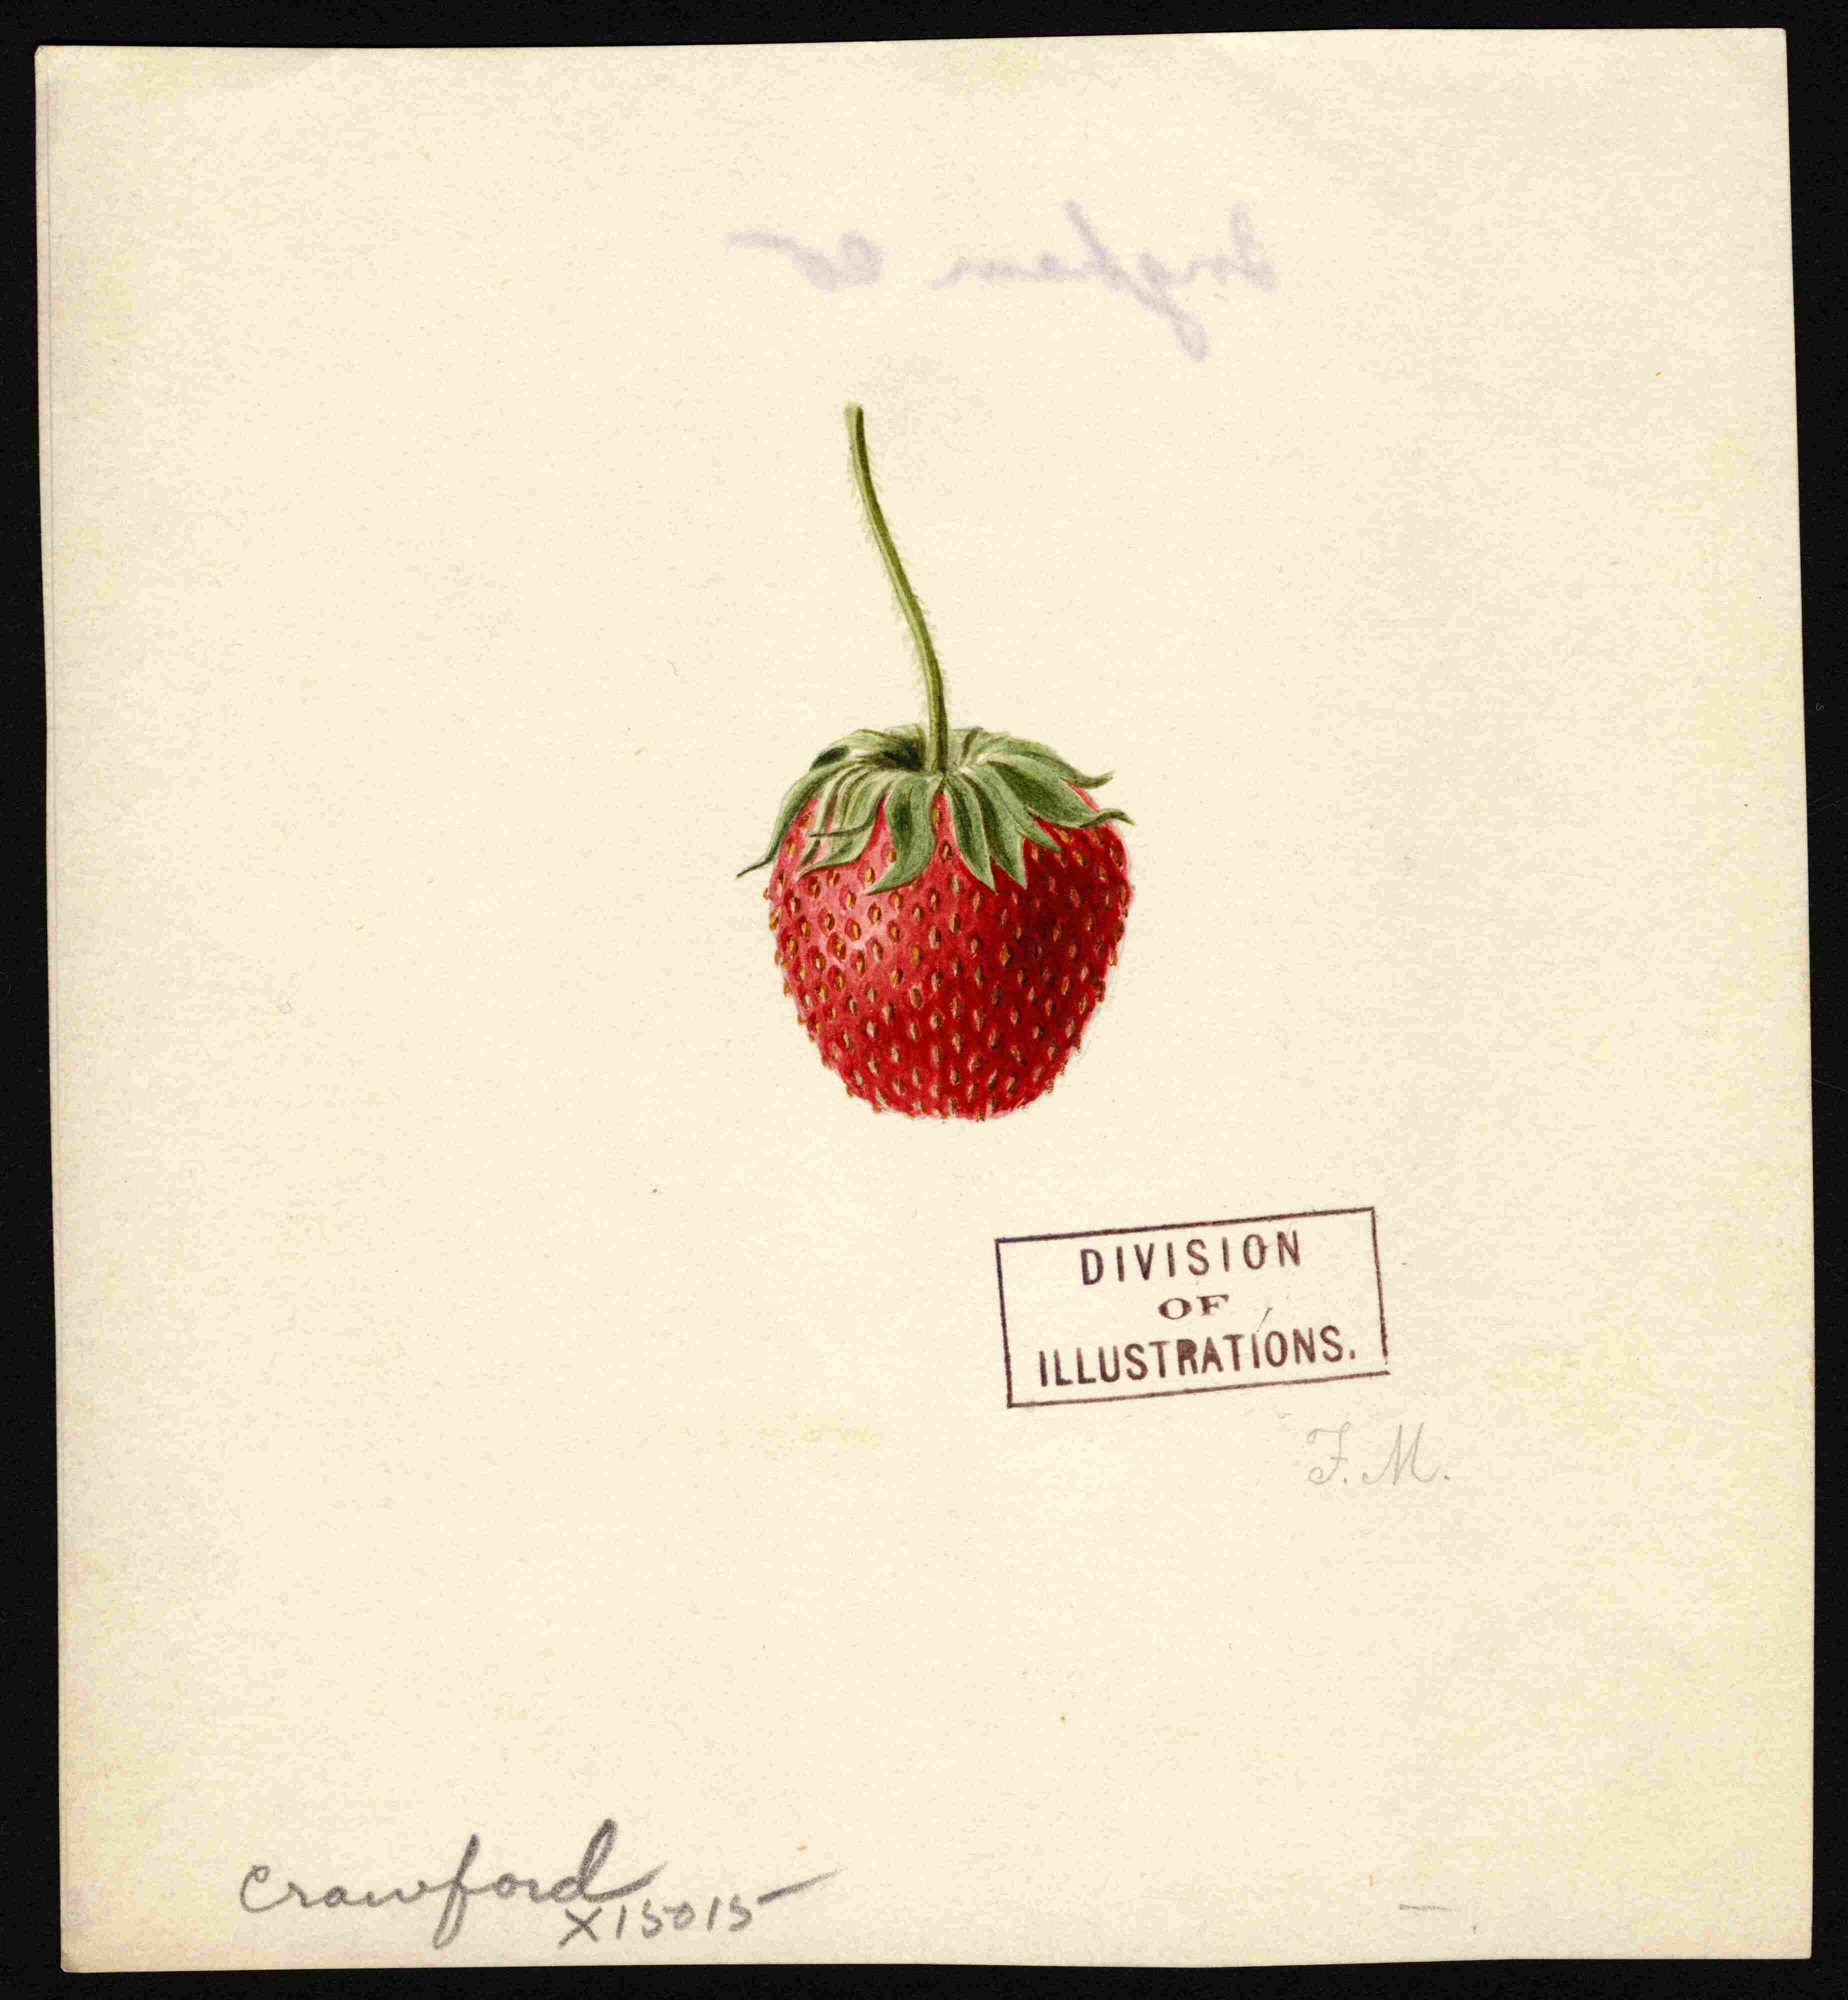 Ingham Co
DIVISION
OF
ILLUSTRATIONS.
F. M.
Crawford
X15015